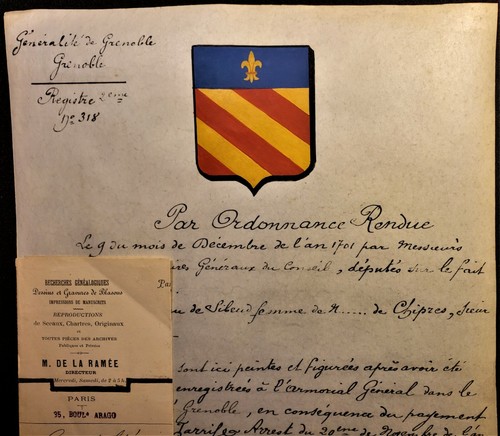 Généralité de Grenoble
Grenoble
Registre 2eme
No 318
Par Ordonnance Rendue
Le 9 du mois de Décembre de l'an 1701 par Messieurs
Généraux du Conseil, députés sur le fait
de Sibend femme de N..... de Chipres, sieur
sont ici peintes et figurées après avoir été
enregistrées à l'armorial Général dans le
Grenoble, en conséquence du payement
Tarrif & Arrest du 20eme de Novembre de l'a
RECHERCHES GÉNÉALOGIQUES
Dessins et Gravures de Blasons
IMPRESSIONS DE MANUSCRITS
REPRODUCTIONS
de Sceaux, Chartres, Originaux
et
TOUTES PIÈCES DES ARCHIVES
Publiques et Privées
M. DE LA RAMÉE
DIRECTEUR
Mercredi, Samedi, de 2 à 5 h.
PARIS
35, BOULd ARAGO